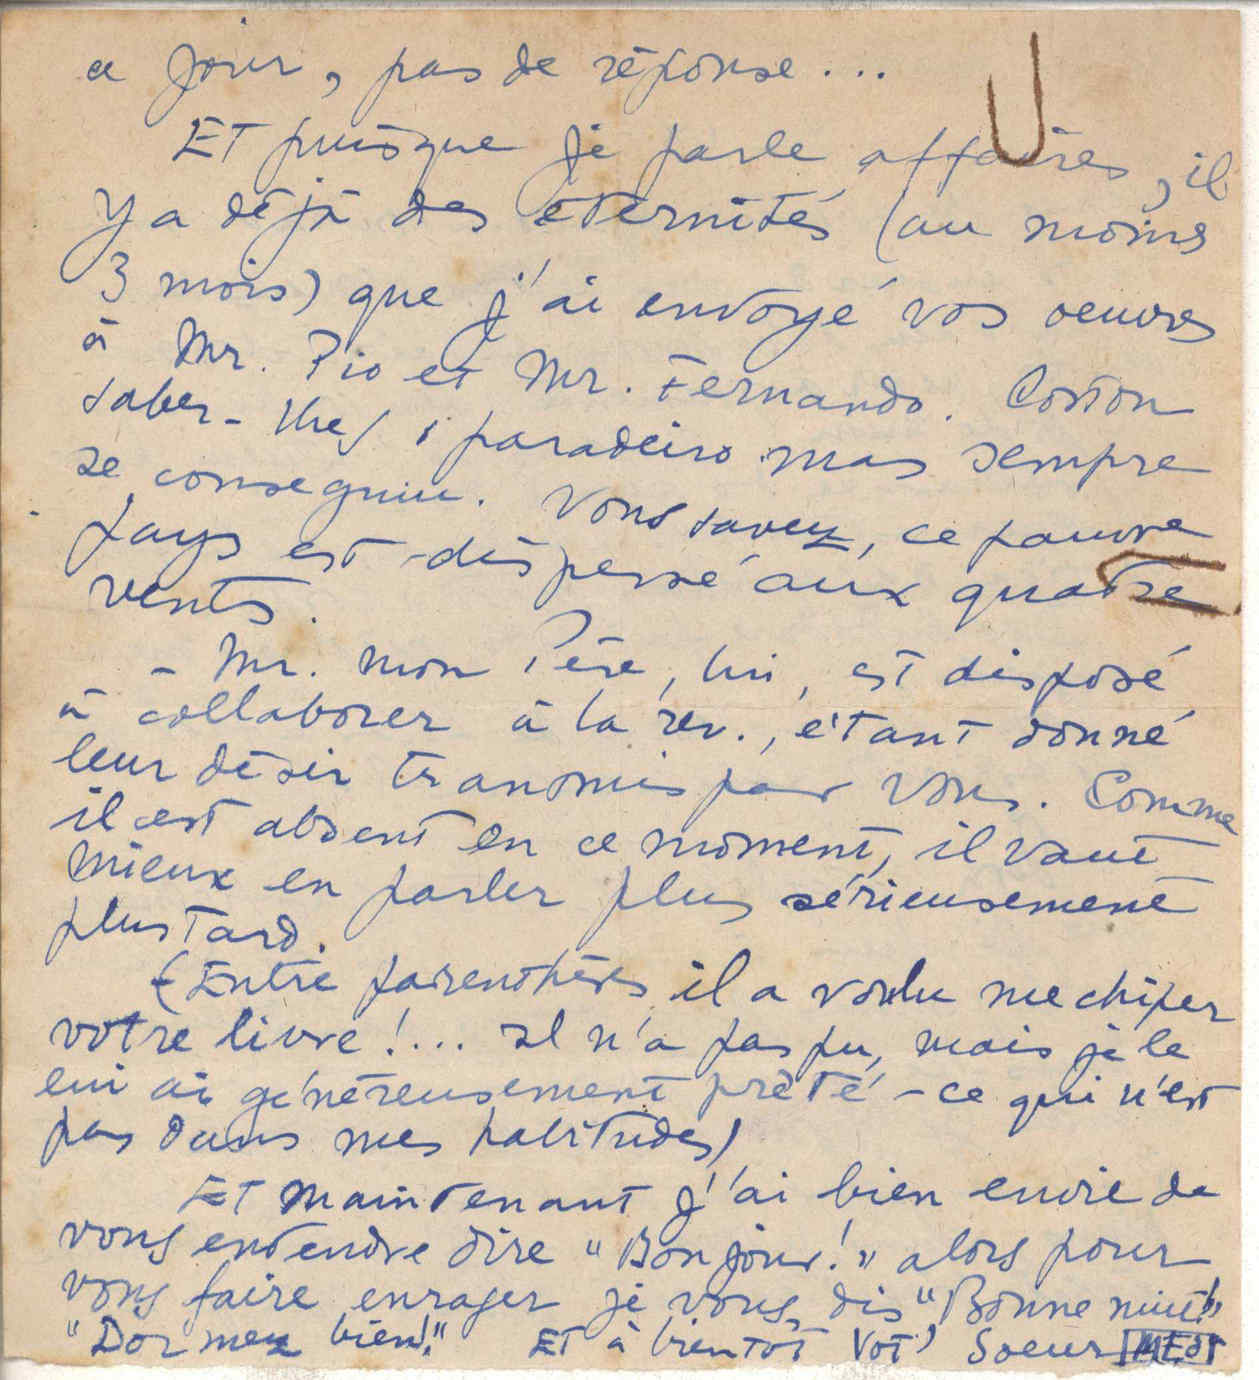 ce jour, pas de réponse...
Et puisque je parle affaires, il
y a déjà des éternités (au moins
3 mois) que j'ai envoyé vos oeuvres
à Mr. Pio et Mr. Fernando. Coston
saber-lhes o paradeiro mas sempre
se conseguiu. Vous savez, ce pauvre
pays est dispersé aux quatre
vents.
- Mr. mon Père, lui, est disposé
à collaborer à la rev., étant donné
leur désir transmis par vous. Comme
il est absent en ce moment, il vaut
mieux en parler plus sérieusement
plus tard.
(Entre parenthèses il a voulu me chiper
votre livre!... Il n'a pas pu, mais je le
lui ai généreusement prêté - ce qui n'est
pas dans mes habitudes)
Et maintenant j'ai bien envie de
vous entendre dire "Bonjour!" alors pour
vous faire enrager je vous dis "Bonne nuit!"
"Dormez bien!" Et à bientôt Vot' Soeur